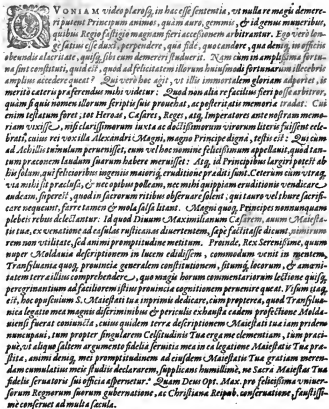 QVONIAM video plerosq; in hac esse sententia, vt nulla re magis demere-
ri putent Principum animos, quàm auro, gemmis, & id genus muneribus,
quibus Regio fastigio magnam fieri accessionem arbitrantur. Ego verò lon-
gè satius esse duxi, perpendere, qua fide, quo candore, qua deniq; in officijs
obeundis alacritate, quisq; sibi eum demereri studuerit. Nam cùm in amplissima fortu-
na sint constituti, quid est, quod ad felicitatem, summi huiusmodi fortunarum illecebris
amplius accedere queat? Qui verò hoc agit, vt illis immortalem gloriam adporiet, is
meritò cæteris præferendus mihi videtur: Quod non alia re facilius fieri posse arbitror,
quàm si quis nomen illorum scriptis suis prouehat, ac posteritatis memoria tradat. Cui
enim testatum foret, tot Heroas, Cæsares, Reges, atq; Imperatores ante nostram memo-
riam vixisse, nisi clarissimorum iuxta ac doctissimorum virorum literis fuissent cele-
brati, cuius rei vox illa Alexandri Magni, magno Principe digna, testis est: Qui cùm
ad Achillis tumulum peruenisset, eum vel hoc nomine felicissimum appellauit, quod tan-
tum præconem laudum suarum habere meruisset: Atq; id Principibus largiri potest ab
his solùm, qui felicioribus ingenijs maioriq; eruditione præditi sunt. Ceterùm cùm vtraq;
via mihi sit præclusa, & nec opibus polleam, nec mihi quippiam eruditionis vendicare
audeam, superest, quod in sacrorum ritibus obseruare solent, qui tauro vel thure sacrifi-
care nequeunt, farre tamen & mola salsa litant. Magni quoq; Principes nonnunquam
plebeis rebus delectantur: Id quod Diuum Maximilianum Cæsarem, auum Maiesta-
tis tuæ, ex venatione ad casulas rusticanas diuertentem, sæpè factitasse dicunt, nimirum
rem non vtilitate, sed animi promptitudine metitum. Proinde, Rex Serenissime, quum
nuper Moldauiæ descriptionem in lucem edidissem, commodùm venit in mentem,
Transyluaniæ quoq; prouinciæ generalem constitutionem, situmq; locorum, & amœni-
tatem terræ illius comprehendere, quo magis horum connumeratarum lectione quisq;
peregrinantium ad faciliorem istius prouinciæ cognitionem peruenire queat. Visum itaq;
est, hoc opusculum S. Maiestati tuæ inprimis dedicare, cùm propterea, quod Transylua-
nica legatio mea magnis discriminibus & periculis exhausta eadem profectione Molda-
uiensi fuerat coniuncta, cuius quidem terræ descriptionem Maiestati tuæ iam pridem
nuncupaui, tum propter singularem Celsitudinis Tuæ erga me clementiam, tum præci-
puè, vt aliquo saltem argumento fidelia seruitia mea in ea legatione Maiestati Tuæ præ-
stita, animi deniq; mei promptitudinem ad eiusdem Maiestatis Tuæ gratiam meren-
dam cumulatius meis studijs declararem, supplicans humillimè, ne Sacra Maiestas Tua
fidelis seruitoris sui officia aspernetur. Quam Deus Opt. Max. pro felicissima vniuer-
sorum Regnorum suorum gubernatione, ac Christianæ Reipub. conseruatione, faustissi-
mè conseruet ad multa sæcula.